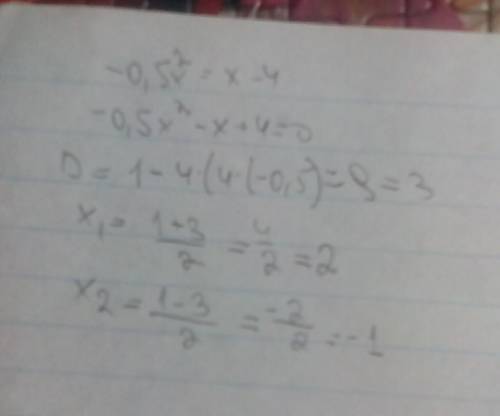 -0,5x² = x - 4
-0,5x² - x + 4 = 0
D = 1 - 4·(4·(-0,5) = 9 = 3
x₁ = \frac{1+3}{2} = \frac{4}{2} = 2
x₂ = \frac{1-3}{2} = \frac{-2}{2} = -1